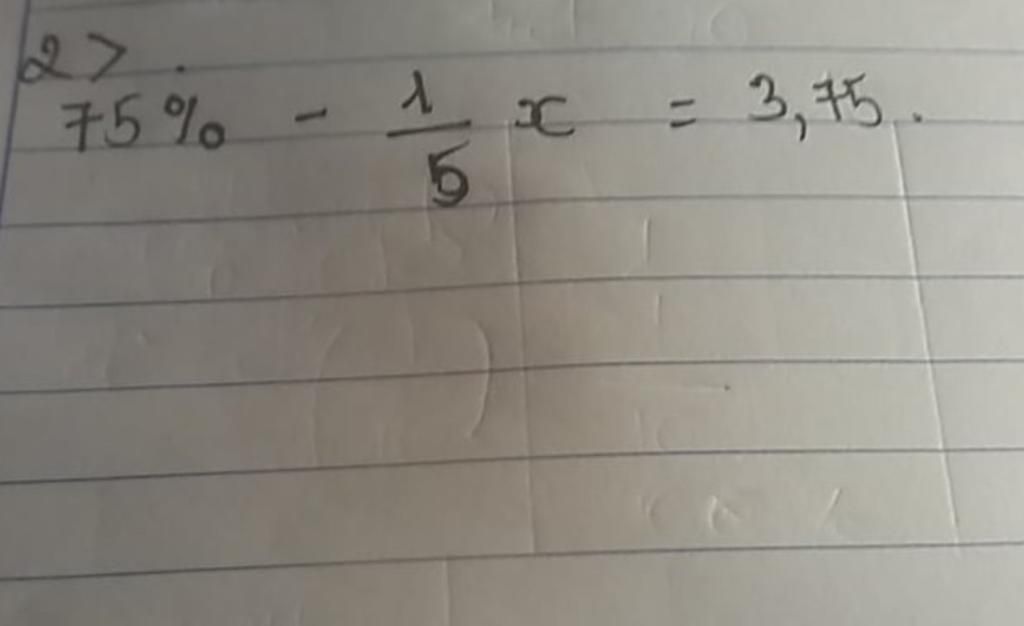 2>.
75% - 1/5 x = 3,75.